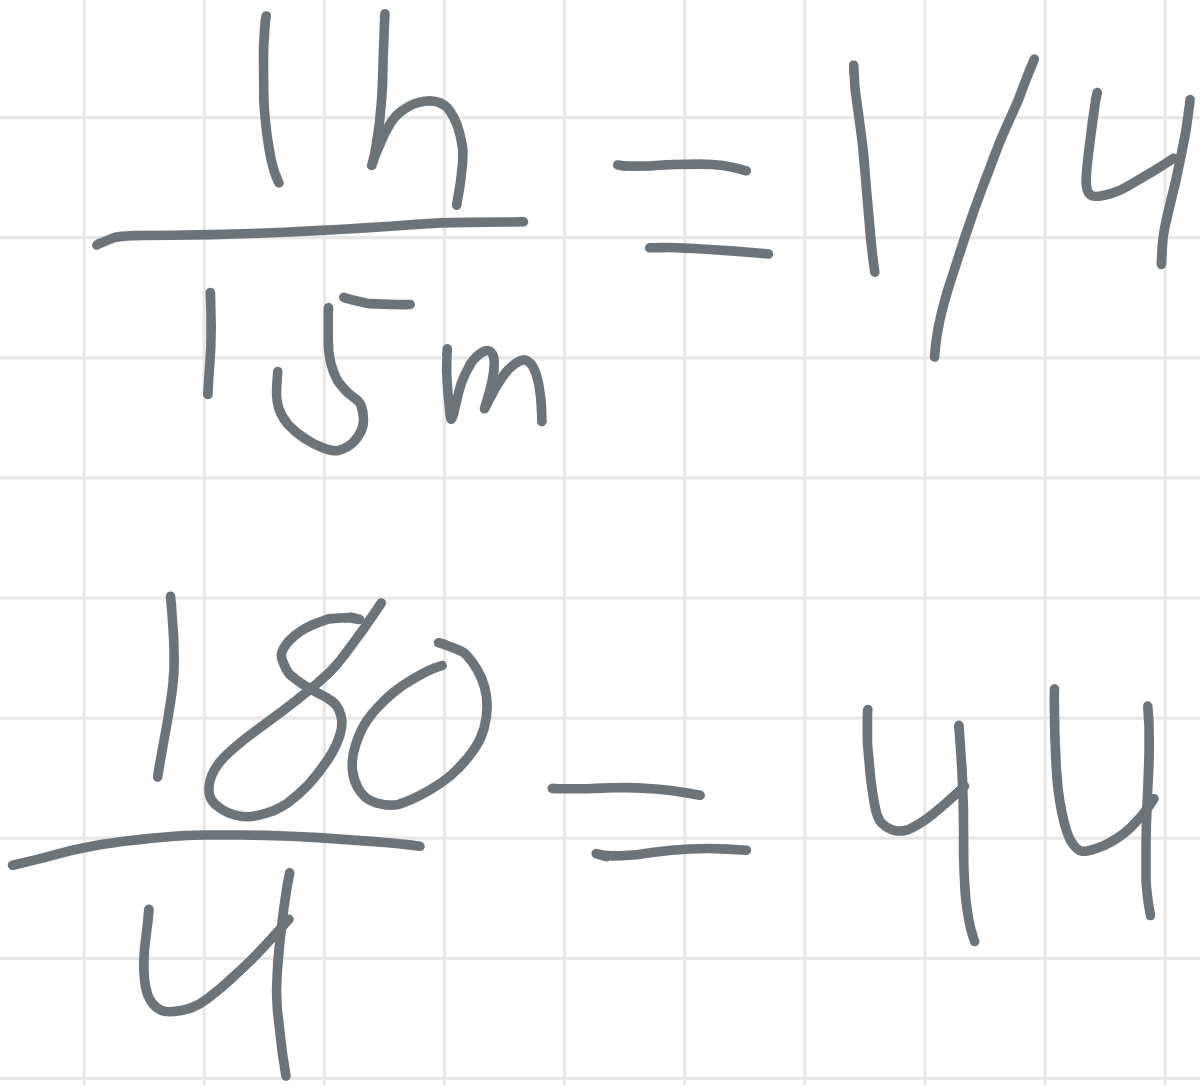 1h
15m = 1/4
180
4 = 44